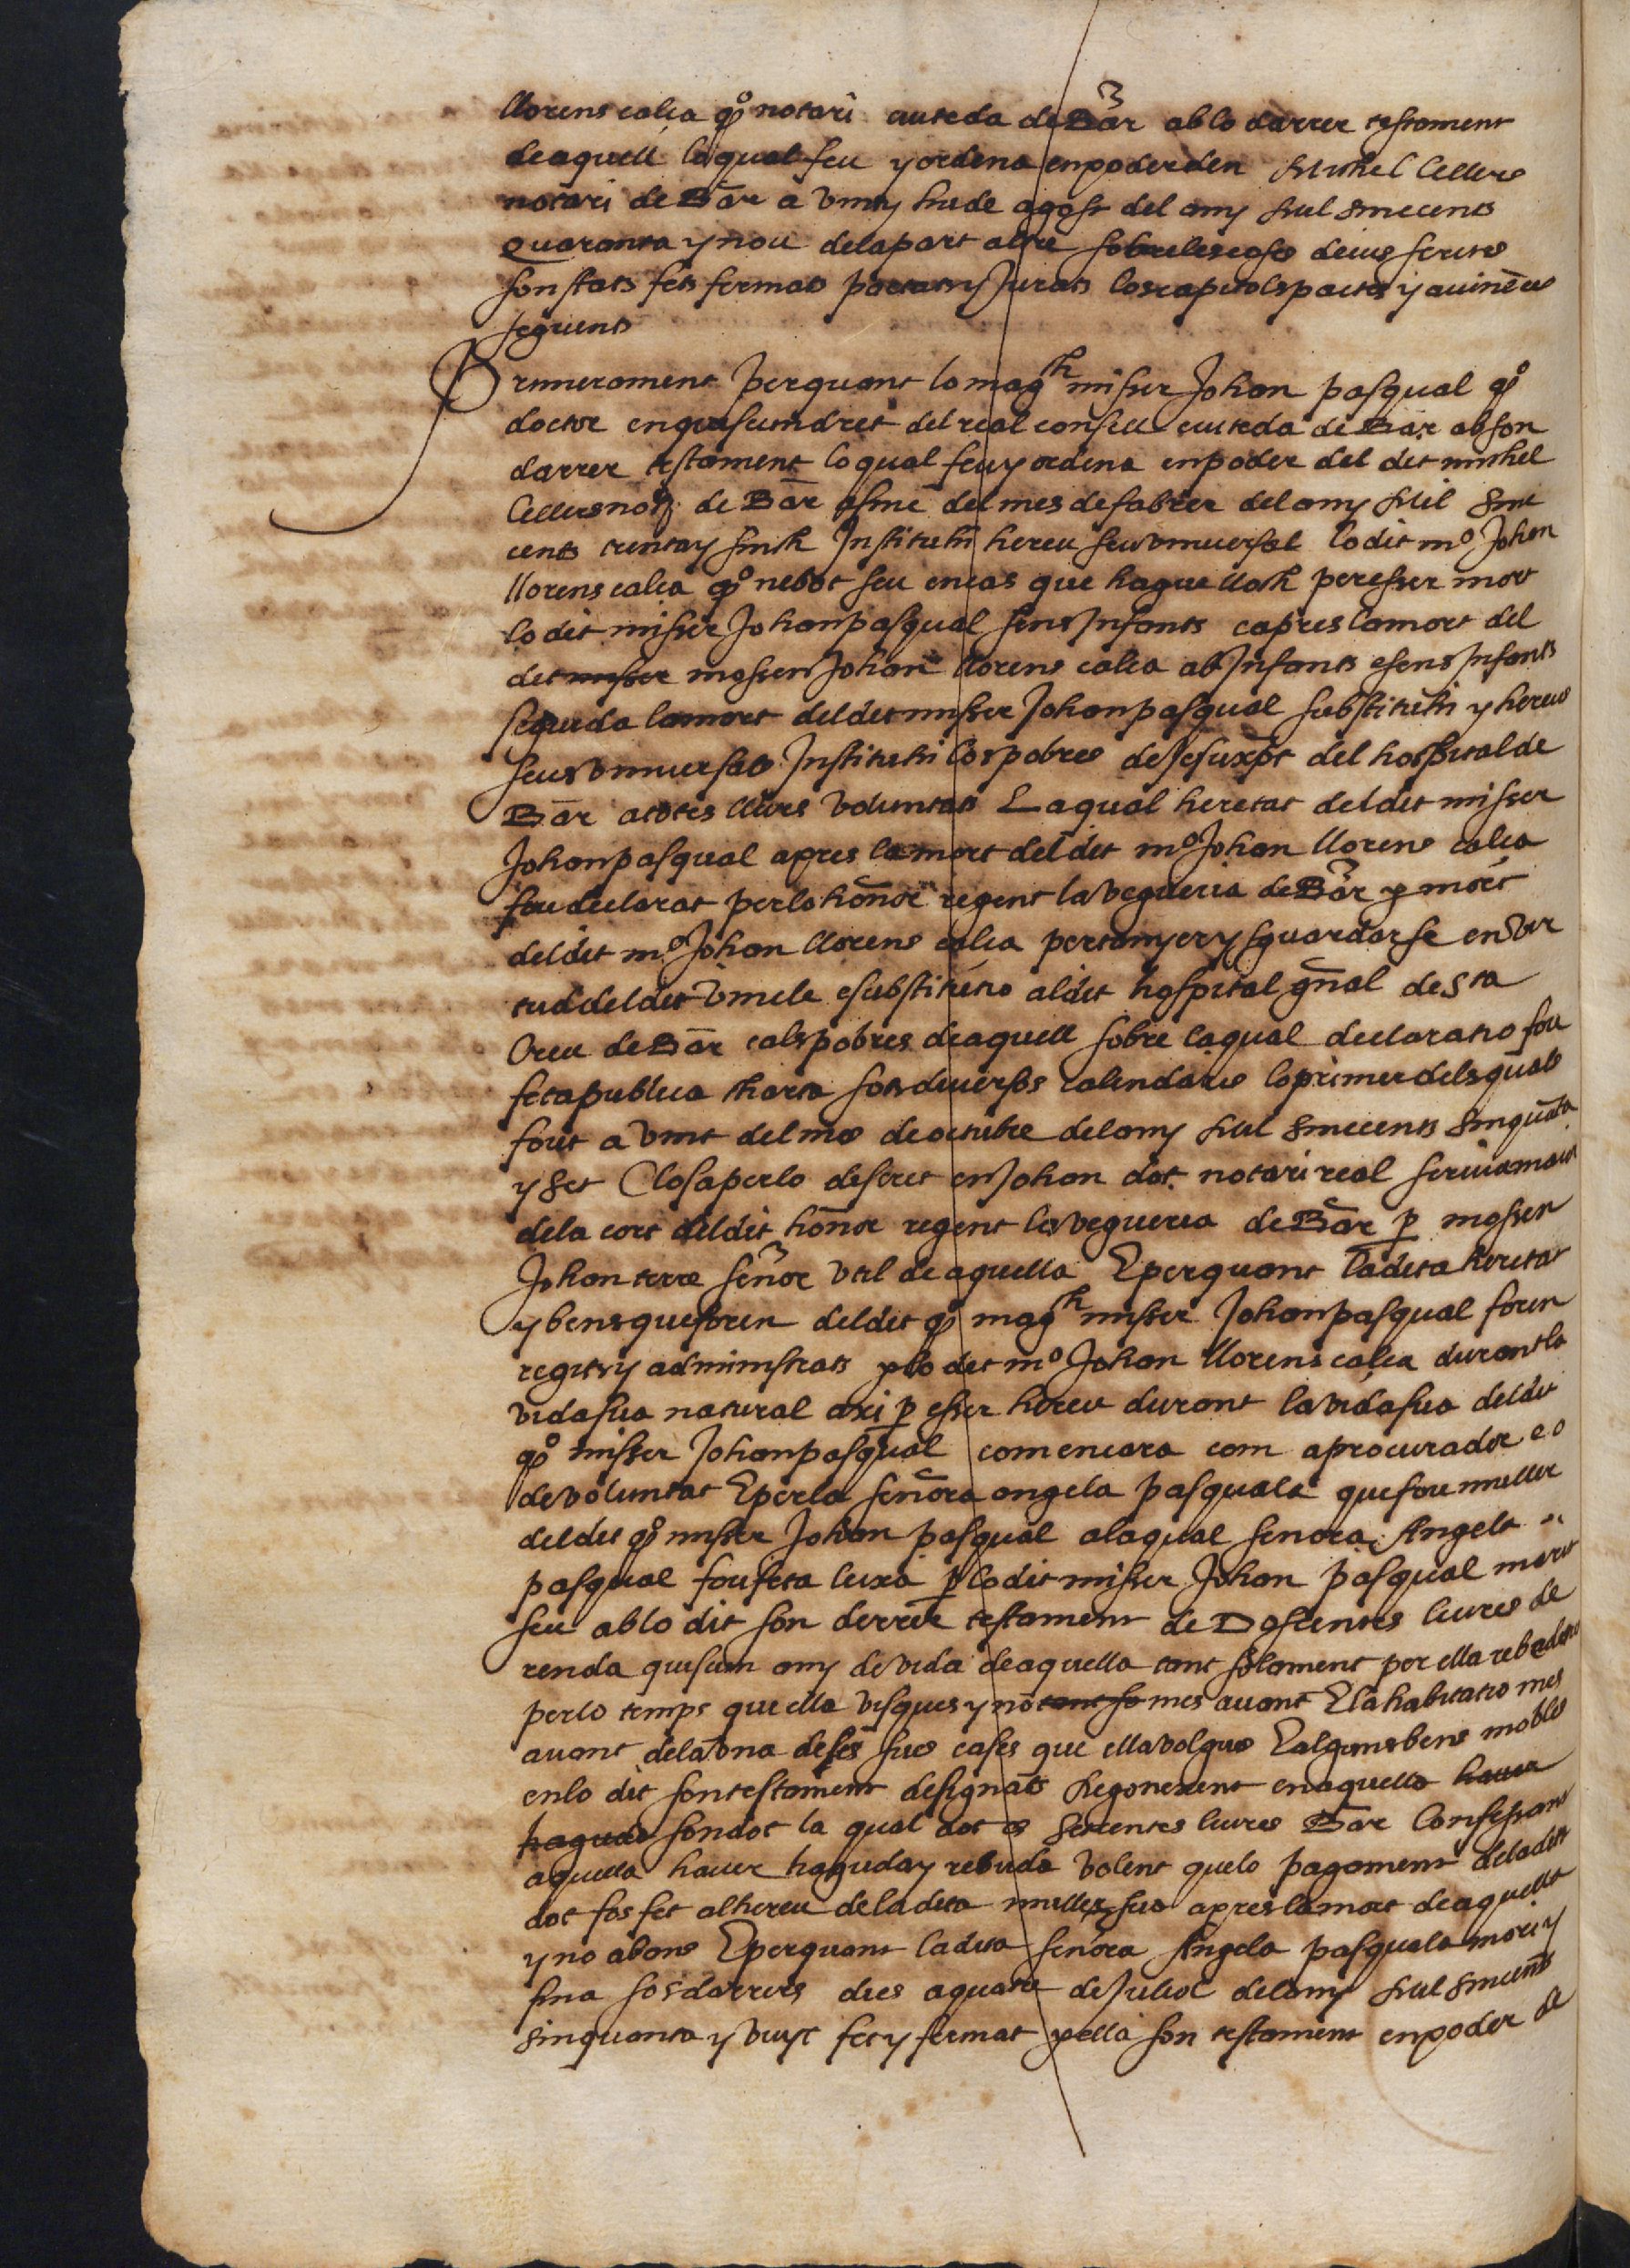 llorens calça qº notari ciutada de Bar ab lo darrer testament
de aquell lo qual feu y ordena en poder den Michel Cellers
notari de Bar a vint y hu de agost del any Mil Sinccents
quaranta y nou de la part altre sobre les coses deius scrites
son stats fets fermats pactats y Jurats los capitols pactes y auinēces
seguents
Primerament per quant lo magch misser Johan pasqual qº
doctor en quiscun dret del real consell ciutada de Bar ab son
darrer testament lo qual feu y ordena en poder del dit michel
Cellers not de Bar del mes de fabrer del any Mil Sinc
cents trenta y sinch Instituhi hereu seu vniuersal lo dit mº Johan
llorens calça qº nebot seu en cas que hague lloch per esser mort
lo dit misser Johan pasqual sens Infants e apres la mort del
dit misser mossen Johan llorens calça ab Infants e sens Infants
seguida la mort del dit misser Johan pasqual substituhi y hereus
seus vniuersals Instituhi los pobres de Jesuxpt del hospital de
Bar a totes llurs voluntats La qual heretat del dit misser
Johan pasqual apres la mort del dit mº Johan llorens calça
fou declarat per lo honor regent la vegueria de Bar p mort
del dit mº Johan llorens calça pertanyer y sguardarse en vir
tud del dit vincle e substitutio al dit hospital gñal de Sta
Creu de Bar e als pobres de aquell sobre la qual declaratio fou
feta publica charta sots diuersos calendaris lo primer dels quals
fonc a vint del mes de octubre del any Mil Sinccents Sinquāta
y Set Closa per lo discret en Johan dot notari real scriua maior
de la cort del dit honor regent la vegueria de Bar p mossen
Johan terre señor vtil de aquella E per quant la dita heretat
y bens que foren del dit qº magch misser Johan pasqual foren
regits y administrats p lo dit mº Johan llorens calça durant la
vida sua natural axi p esser hereu durant la vida sua del dit
qº misser Johan pasqual com encara com a procurador e o
de voluntat E per la señora angela pasquala que fou muller
del dit qº misser Johan pasqual a la qual senora Angela
pasqual fou feta lexa p lo dit misser Johan pasqual marit
seu ab lo dit son derrer testament de Doscentes liures de
renda quiscun any de vida de aquella tant solament per ella rebedores
per lo temps que ella visques y no tant so mes auant E la habitatio mes
auant de la vna de ses sues cases que ella volgues E alguns bens mobles
en lo dit son testament designats Regonexent en aquella hauer
haguda son dot la qual dot es Setcentes liures Bar Confessant
aquella hauer haguda y rebuda volent que lo pagament de la dita
dot fos fet al hereu de la dita muller sua apres la mort de aquella
y no abans E per quant la dita señora Angela pasquala mori y
fina sos darrers dies a quatre de Juliol del any Mil Sinccents
Sinquanta y vuyt fet y fermat p ella son testament en poder de